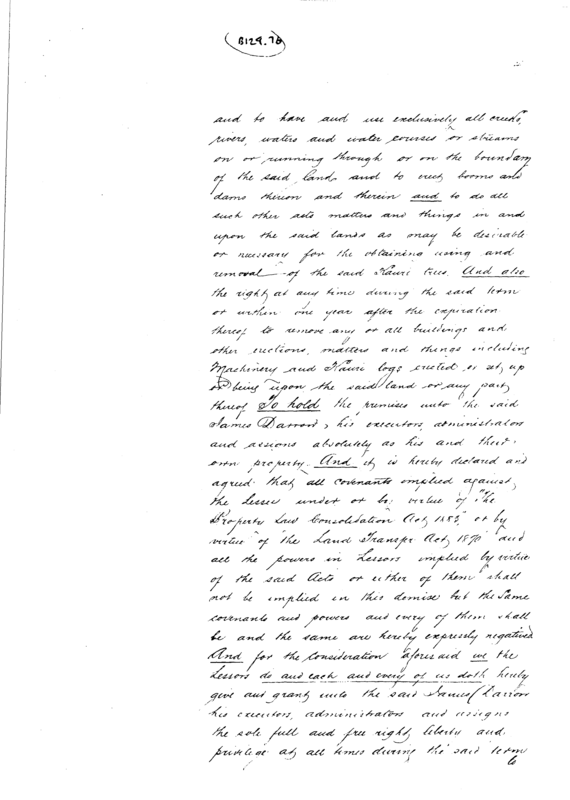 B129.70
and to have and use exclusively all creeks,
rivers, waters and water courses or streams
on or running through or on the boundary
of the said lands and to erect booms and
dams thereon and therein and to do all
such other acts matters and things in and
upon the said lands as may be desirable
or necessary for the obtaining using and
removal of the said Kauri trees. And also
the right at any time during the said term
or within one year after the expiration
thereof to remove any or all buildings and
other erections, matters and things including
Machinery and Kauri logs erected or set up
or being upon the said land or any part
thereof To hold the premises unto the said
James Darrow, his executors, administrators
and assigns absolutely as his and their
own property. And it is hereby declared and
agreed that all covenants implied against
the Lessee under or by virtue of "The
Property Law Consolidation Act, 1883" or by
virtue of "the Land Transfer Act, 1870" and
all the powers in Lessors implied by virtue
of the said Acts or either of them shall
not be implied in this demise but the same
covenants and powers and every of them shall
be and the same are hereby expressly negatived
And for the Consideration aforesaid we the
Lessors do and each and every of us doth hereby
give and grant unto the said Darrow
his executors, administrators and assigns
the sole full and free right, liberty and
privilege at all times during the said term
to